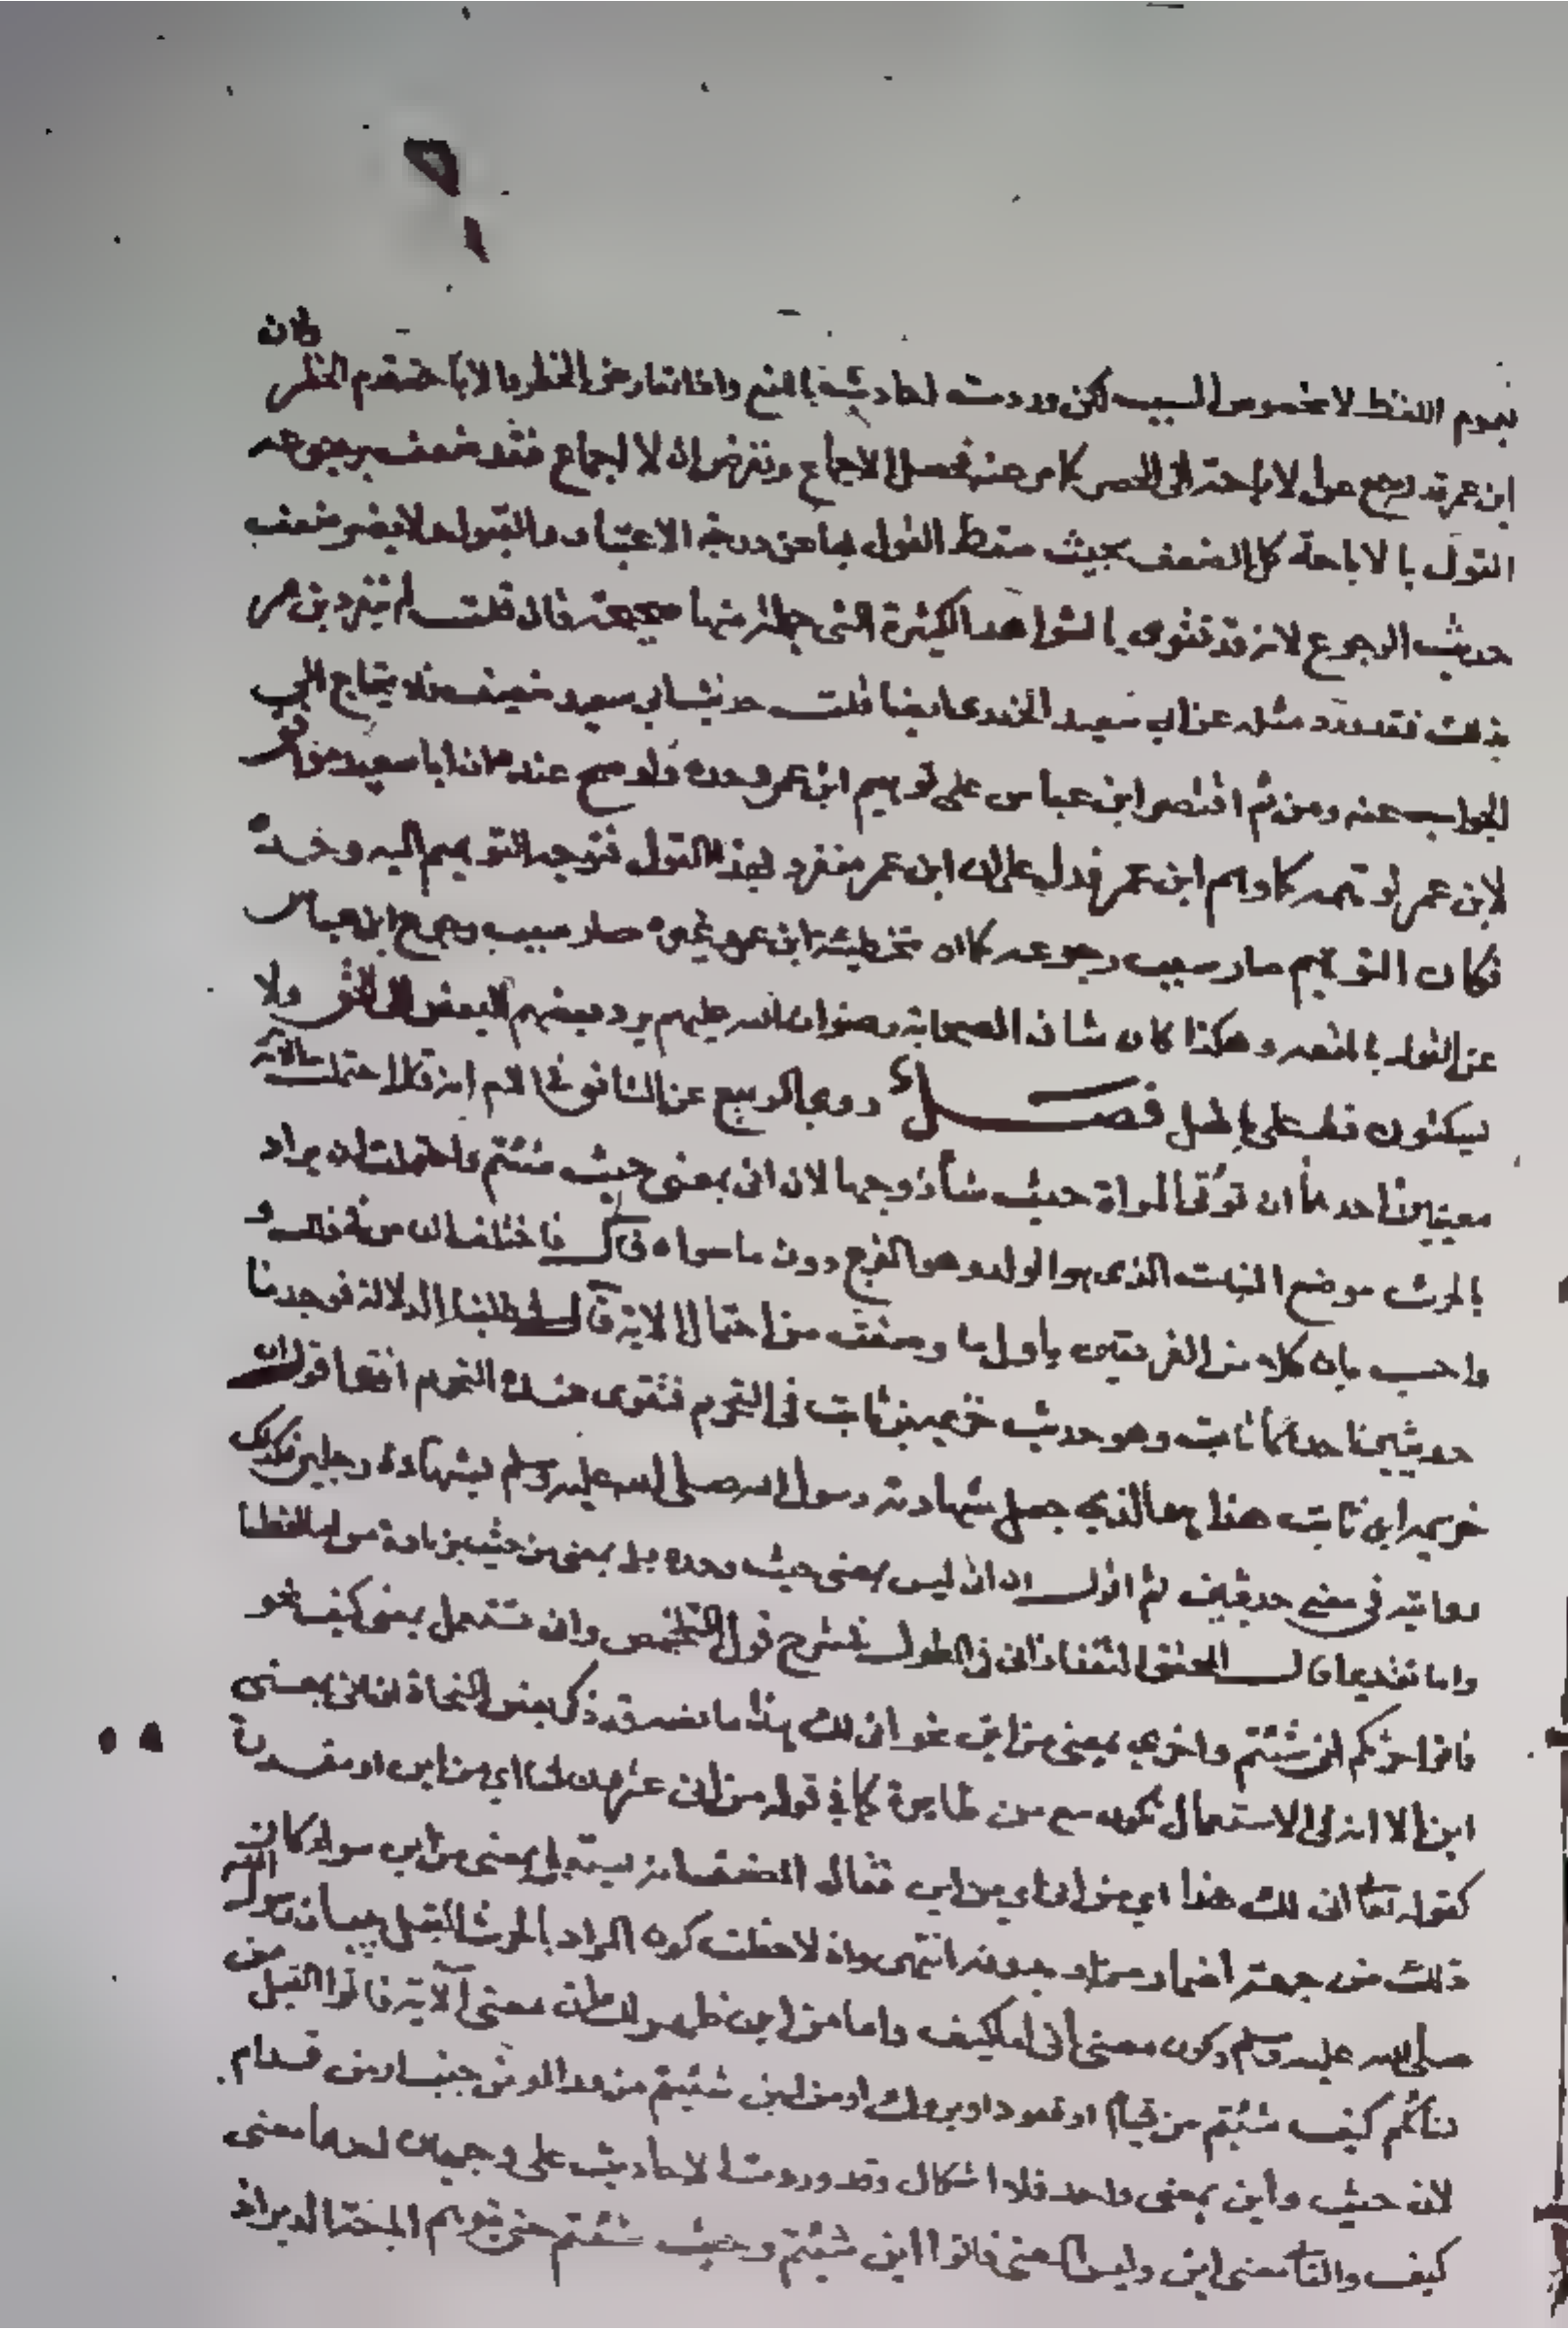 بعموم اللفظ لا بخصوص السبب لكن وردت احاديث بالمنع واذا تعارض الحظر والاباحة قدم الحظر ولان
ابن عمر قد رجع عن الاباحة الى الحصر كما مر عنه فحصل الاجماع ونفرض ان لا اجماع فقد ضعف برجوعه
القول بالاباحة كل الضعف بحيث سقط القول بها عن درجة الاعتبار والقبول ولا يضر ضعف
حديث الرجوع لانه قد تقوى بالشواهد الكثيرة التي جملة منها صحيحة فان قلت لم ينفرد بن عمر
بذلك فقد ورد مثله عن ابي سعيد الخدري ايضا قلت حديث ابي سعيد ضعيف فلا يحتاج الى
الجواب عنه ومن ثم اقتصر ابن عباس على توهيم ابن عمر وحده ولو صح عنده ان ابا سعيد موافق
لابن عمر لوهمه كما وهم ابن عمر فدل على ان ابن عمر منفرد بهذا القول فتوجه التوهيم اليه وحده
فكان التوهيم صار سبب رجوعه كما ان تخطئة ابن عمر وغيره صار سبب رجوع ابن عباس
عن القول بالمتعة وهكذا كان شان الصحابة رضوان الله عليهم يرد بعضهم البعض الى الحق ولا
يسكتون قط على باطل فصل روى الربيع عن الشافعي في الام انه قال احتملت الآية
معنيين احدهما ان تؤتى المراة حيث شاء زوجها لان انى بمعنى حيث شئتم واحتملت ان يراد
بالحرث موضع النبات الذي هو الولد وهو الفرج دون ما سواه قال فاختلف اصحابنا في ذلك و
احسب بان كلا من الفريقين ياول ما وصفت من احتمال الاية قال فطلبنا الدلالة فوجدنا
حديثين احدهما ثابت وهو حديث خزيمة بن ثابت في التحريم فتقوى عنده التحريم انتهى اقول ان
خزيمة ابن ثابت هذا هو الذي جعل شهادته رسول الله صلى الله عليه وسلم بشهادة رجلين فكذلك
روايته في معنى حديثين ثم اقول ان انى ليس بمعنى حيث وحده بل بمعنى من حيث بزيادة من اما لفظا
واما تقديرا قال المحقق التفتازاني في المطول في شرح قول التلخيص وانى تستعمل بمعنى كيف نحو
فاتوا حرثكم انى شئتم واخرى بمعنى من اين نحو انى لك هذا ما نصه قد ذكر بعض النحاة ان انى بمعنى
اين الا انه في الاستعمال يكون مع من ظاهرة كما في قوله من انى عشرون لنا اي من اين او مقدرة
كقوله تعالى انى لك هذا اي من انى اي من اين فقال المصنف انه يستعمل بمعنى من اين سواء كان
ذلك من جهة اضمار من او بدونه انتهى واذا لاحظت كون المراد بالحرث القبل ببيان رسول الله
صلى الله عليه وسلم وكون معنى انى اما كيف واما من اين ظهر لك ان معنى الآية فاتوا القبل من
نسائكم كيف شئتم من قيام او قعود او بروك او من اين شئتم من وراء او من جنب او من قدام
لان حيث واين بمعنى واحد فلا اشكال وقد وردت الاحاديث على وجهين احدهما معنى
كيف والثاني معنى اين وليس المعنى فاتوا اين شئتم وحيث شئتم حتى يتوهم